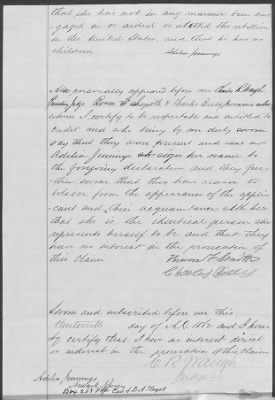 that she has not in any manner been en-
gaged in or aided or abetted the rebellion
in the United States, and that he has no
children
Adelia Jennings
Also personally appeared before me
County Judge & Charles persons
whom I certify to be respectable and entitled to
credit and who being by me duly sworn
say that they were present and saw
Adelia Jennings sign her name to
the foregoing declaration and they fur-
ther swear that they have reason to
believe from the appearance of the appli-
cant and their acquaintance with her
that she is the identical person she
represents herself to be and that they
have no interest in the prosecution of
this claim
Charles
Sworn and subscribed before me this
day of A.D. 186 and I here-
by certify that I have no interest direct
or indirect in the prosecution of this claim
Judge
Adelia Jennings
Box